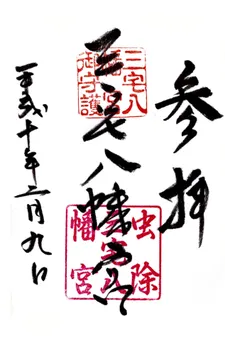 参拝
三宅八幡宮
平成十年二月九日
三宅八幡宮御守護
虫除
三宅八
幡宮